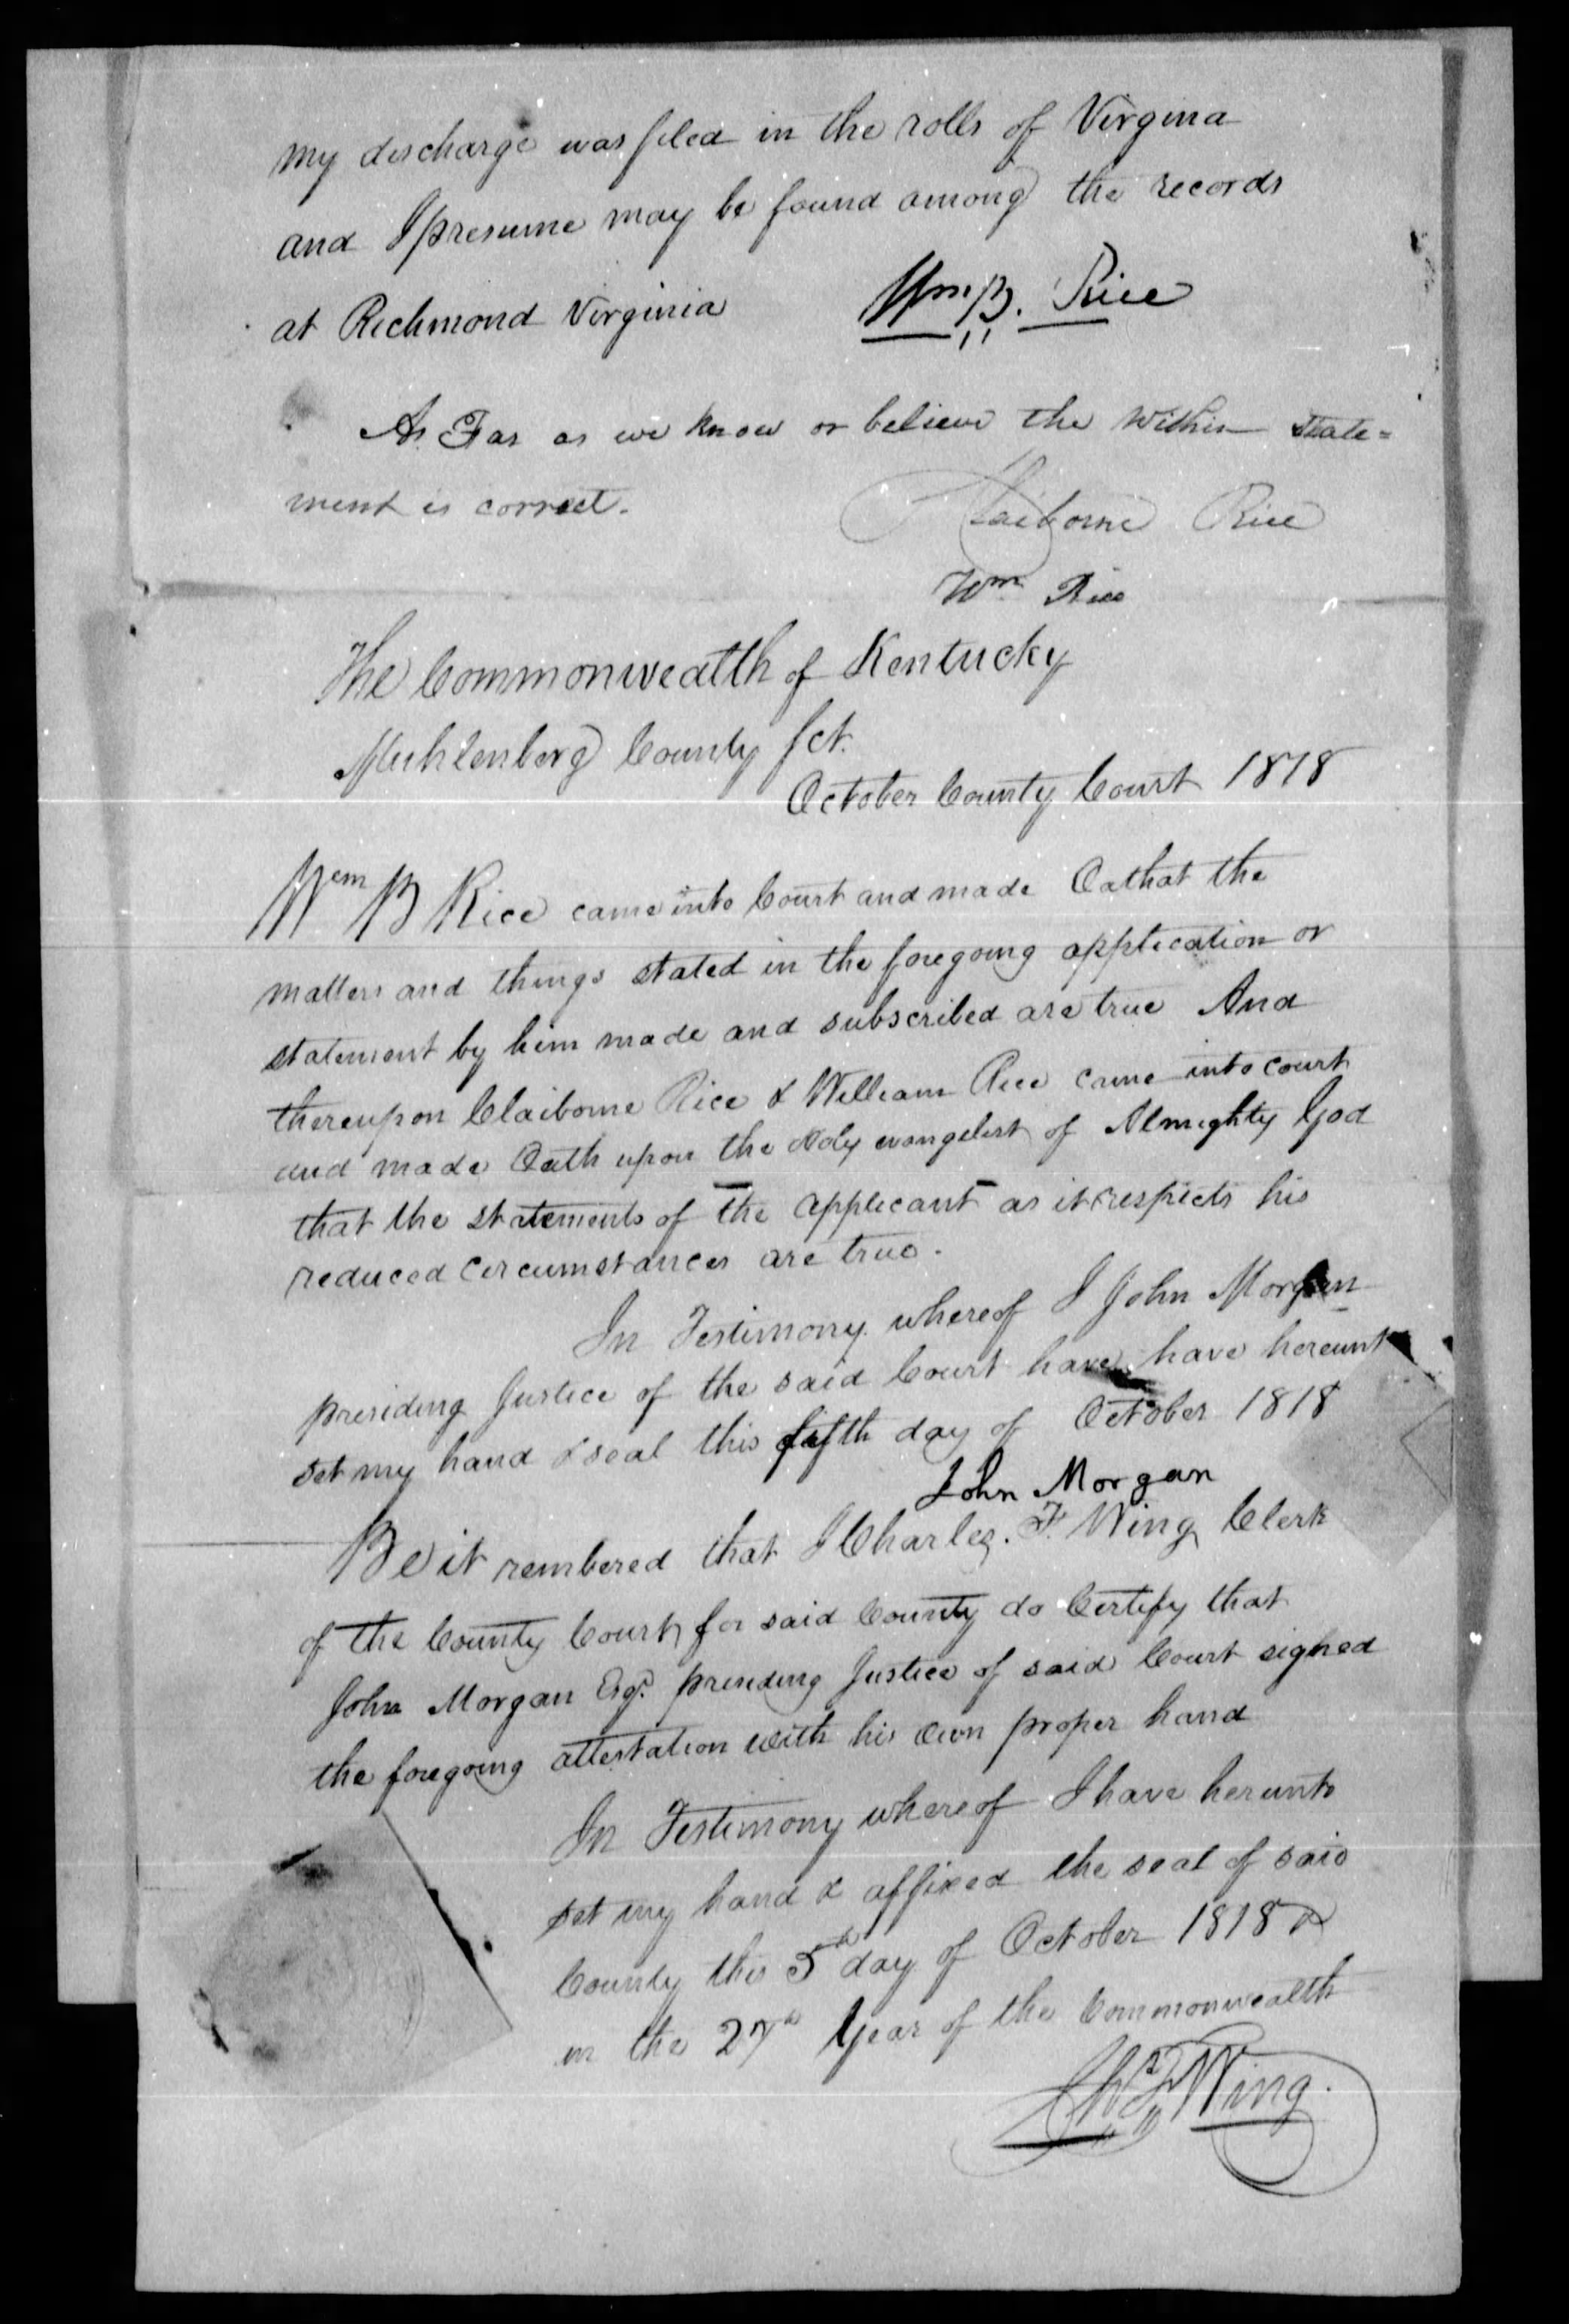 my discharge was filed in the rolls of Virgina
and I presume may be found among the records
at Richmond Virginia Wm B. Rice
As Far as we know or believe the within state=
ment is correct. Claiborne Rice
Wm Rice
The Commonwealth of Kentucky
Muhlenberg County Sct.
October County Court 1818
Wem B Rice came into Court and made Oathat the
matters and things stated in the foregoing application or
statement by him made and subscribed are true And
thereupon Claiborne Rice & William Rice came into court
and made Oath upon the Holy evangelist of Almighty God
that the statements of the applicant as it respects his
reduced circumstances are true.
In Testimony whereof I John Morgan
presiding Justice of the said Court have have hereunt
set my hand & seal this fifth day of October 1818
John Morgan
Be it rembered that I Charles. F. Wing Clerk
of the County Court for said County do Certify that
John Morgan Esqr. presiding Justice of said Court signed
the foregoing attestation with his own proper hand
In Testimony whereof I have herunto
set my hand & affixed the seal of said
County this 5th day of October 1818 &
in the 27th Year of the Commonwealth
Chs F Wing.